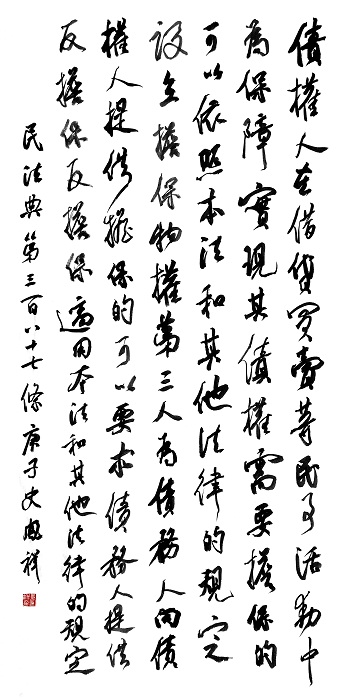 債權人在借貸買賣等民事活動中
為保障實現其債權需要擔保的
可以依照本法和其他法律的規定
設立擔保物權第三人為債務人向債
權人提供擔保的可以要求債務人提供
反擔保反擔保適用本法和其他法律的規定
民法典第三百八十七條庚子史鳳祥